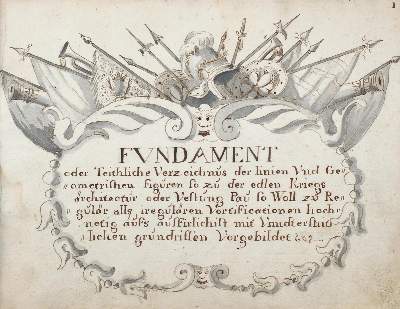 1
FVNDAMENT
oder Teithliche Verzeichnus der linien Vnd Ge-
ometrishen figuren so zu der edlen Kriegs
architectur oder Vestung Pau so Woll zu Re-
gulär alls iregulären Vortificationen hoch-
nötig aufs
mit
lichen grundrissen Vorgebildet